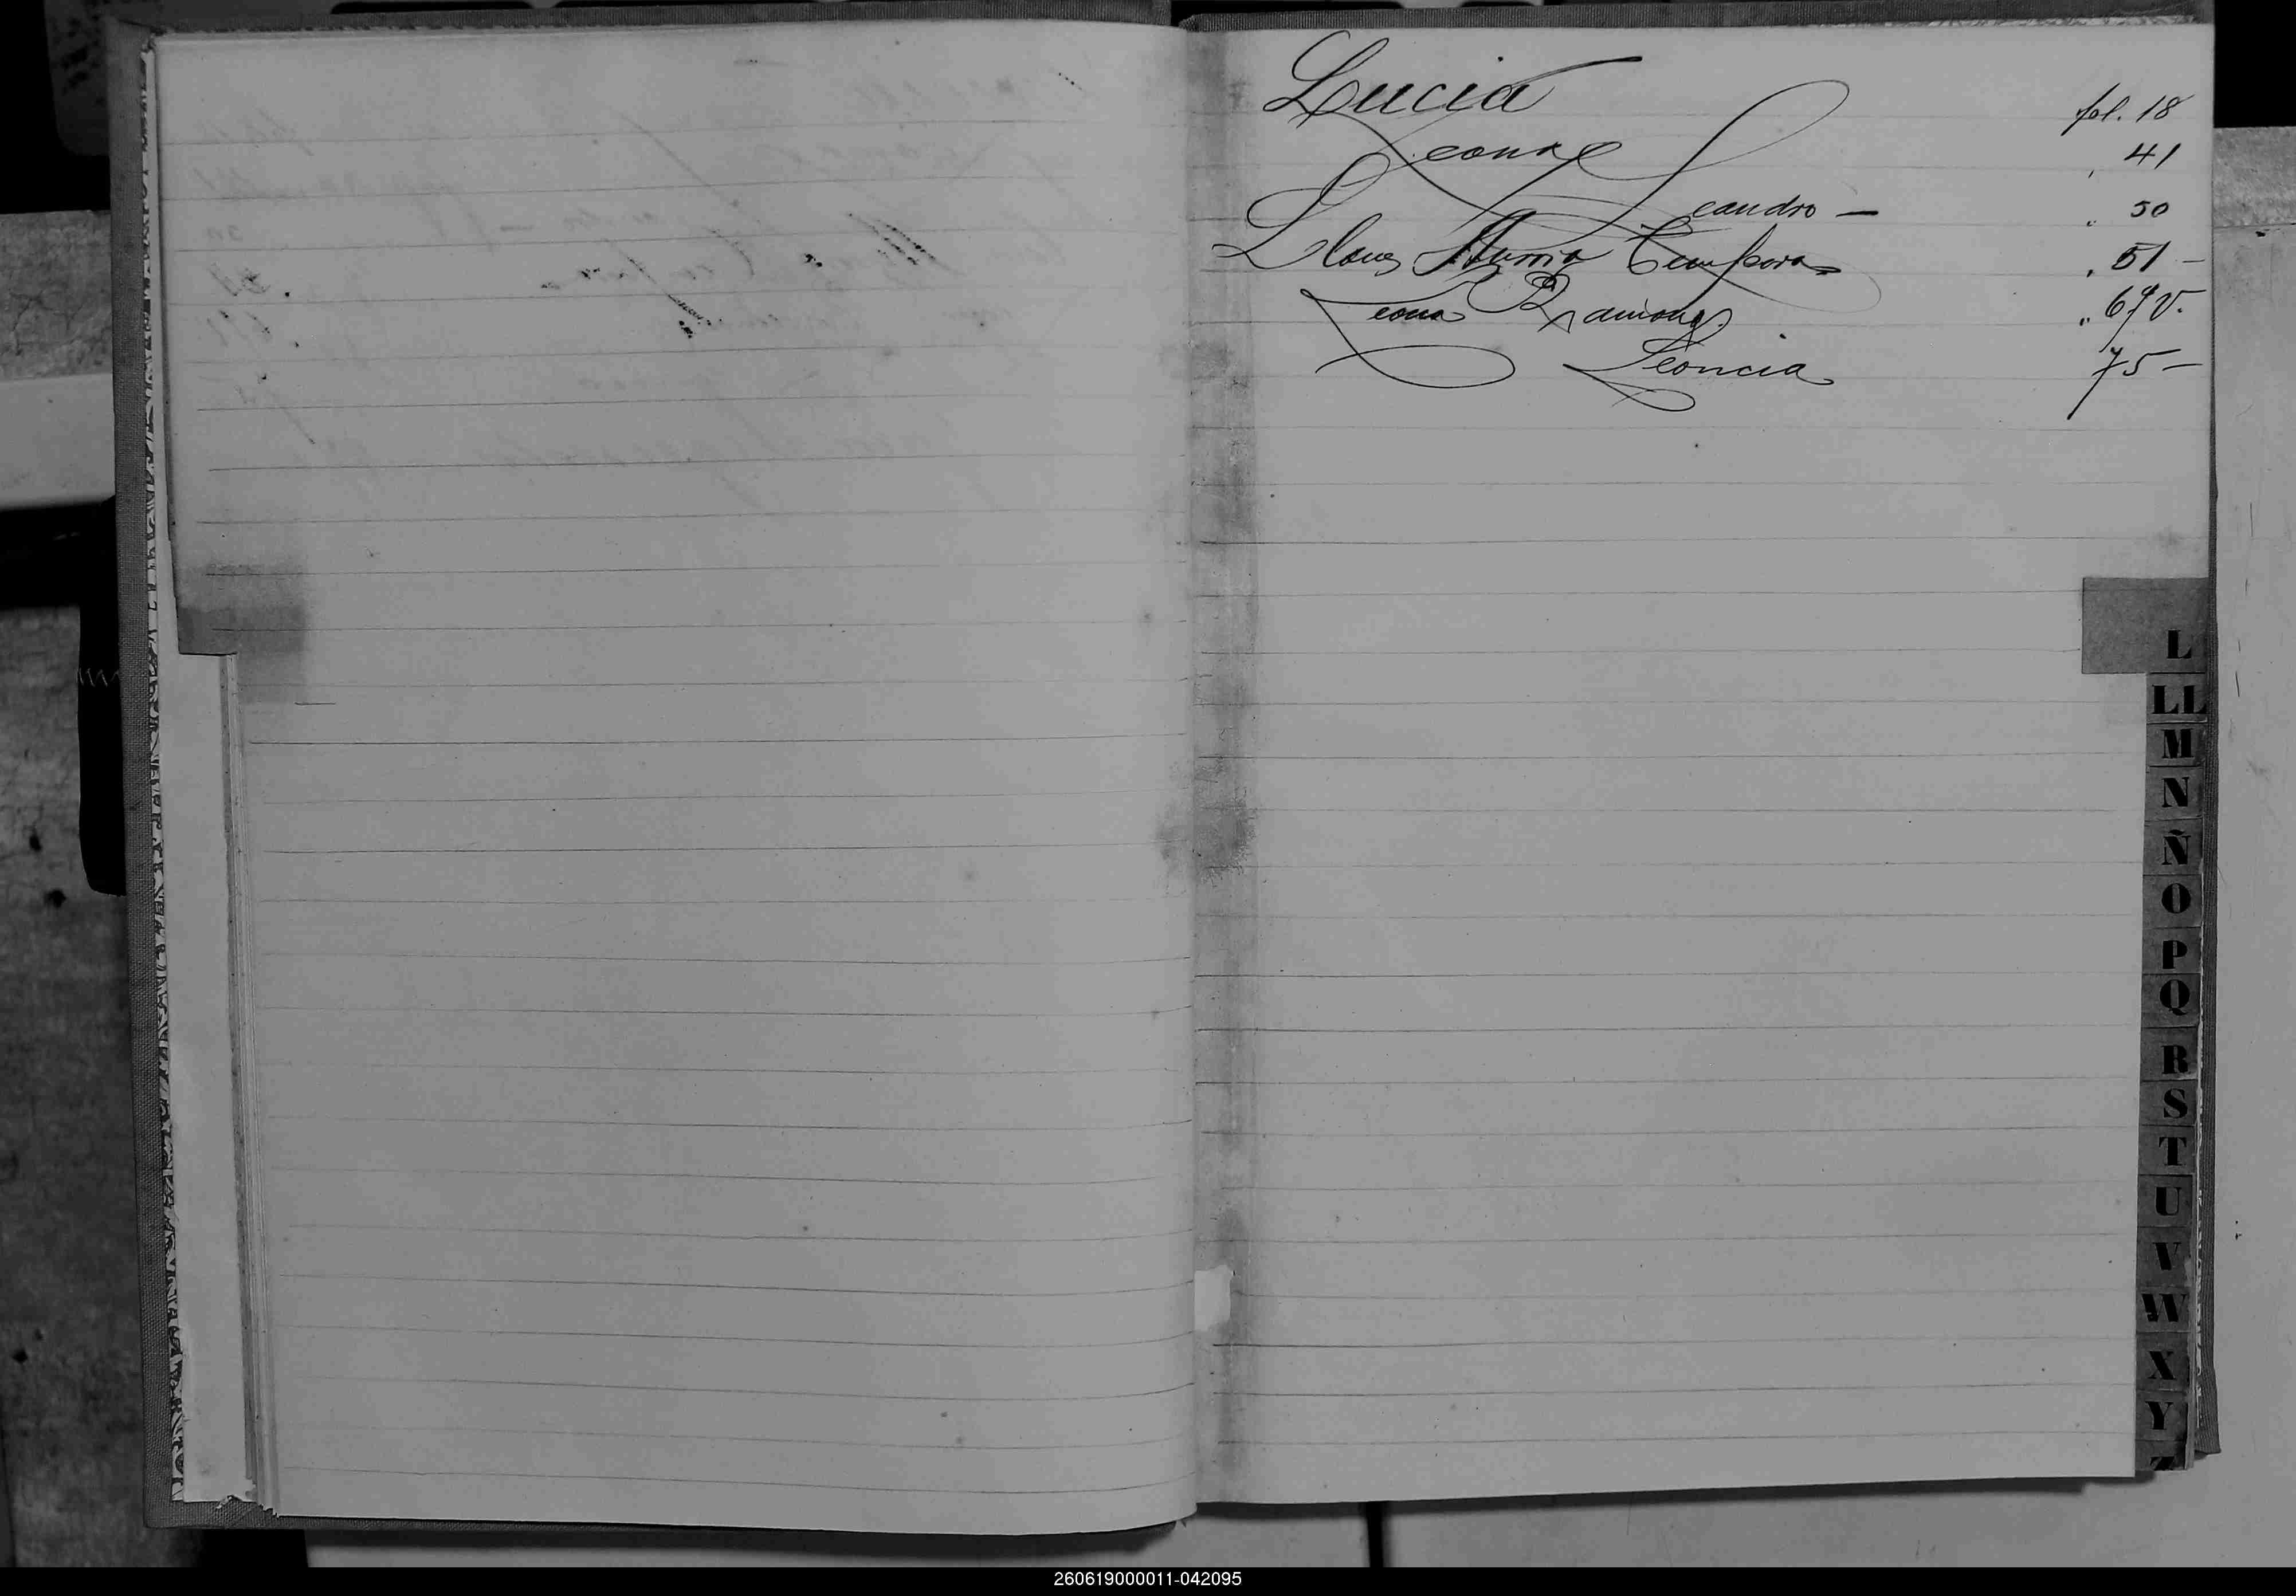 Lucia fol. 18
Leona " 41
Leandro — " 50
Llanes Maria " 51 —
Leona Ramona " 67 v.
Leoncia 75 —
L
LL
M
N
Ñ
O
P
Q
R
S
T
U
V
W
X
Y
Z
260619000011-042095